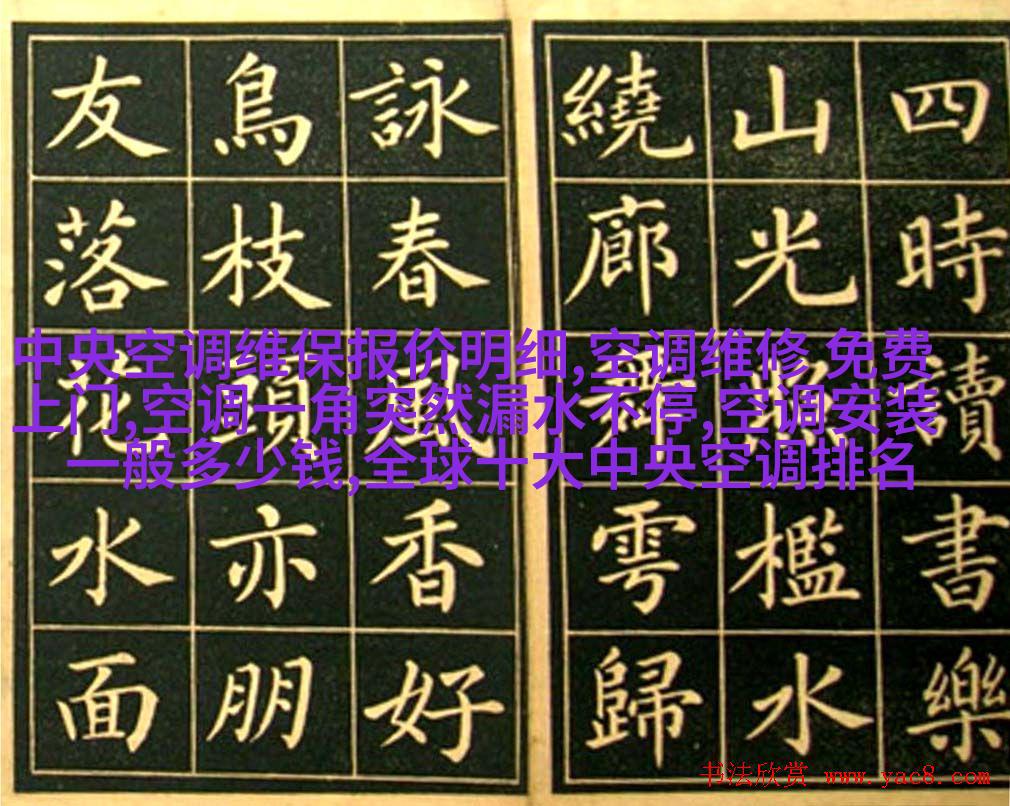 四時讀書樂
山光照檻水
繞廊舞雩歸
詠春風香好
鳥枝頭亦朋
友落花水面
中央空调维保报价明细,空调维修 免费
上门,空调一角突然漏水不停,空调安装
一般多少钱,全球十大中央空调排名
书法欣赏 www.yac8.com